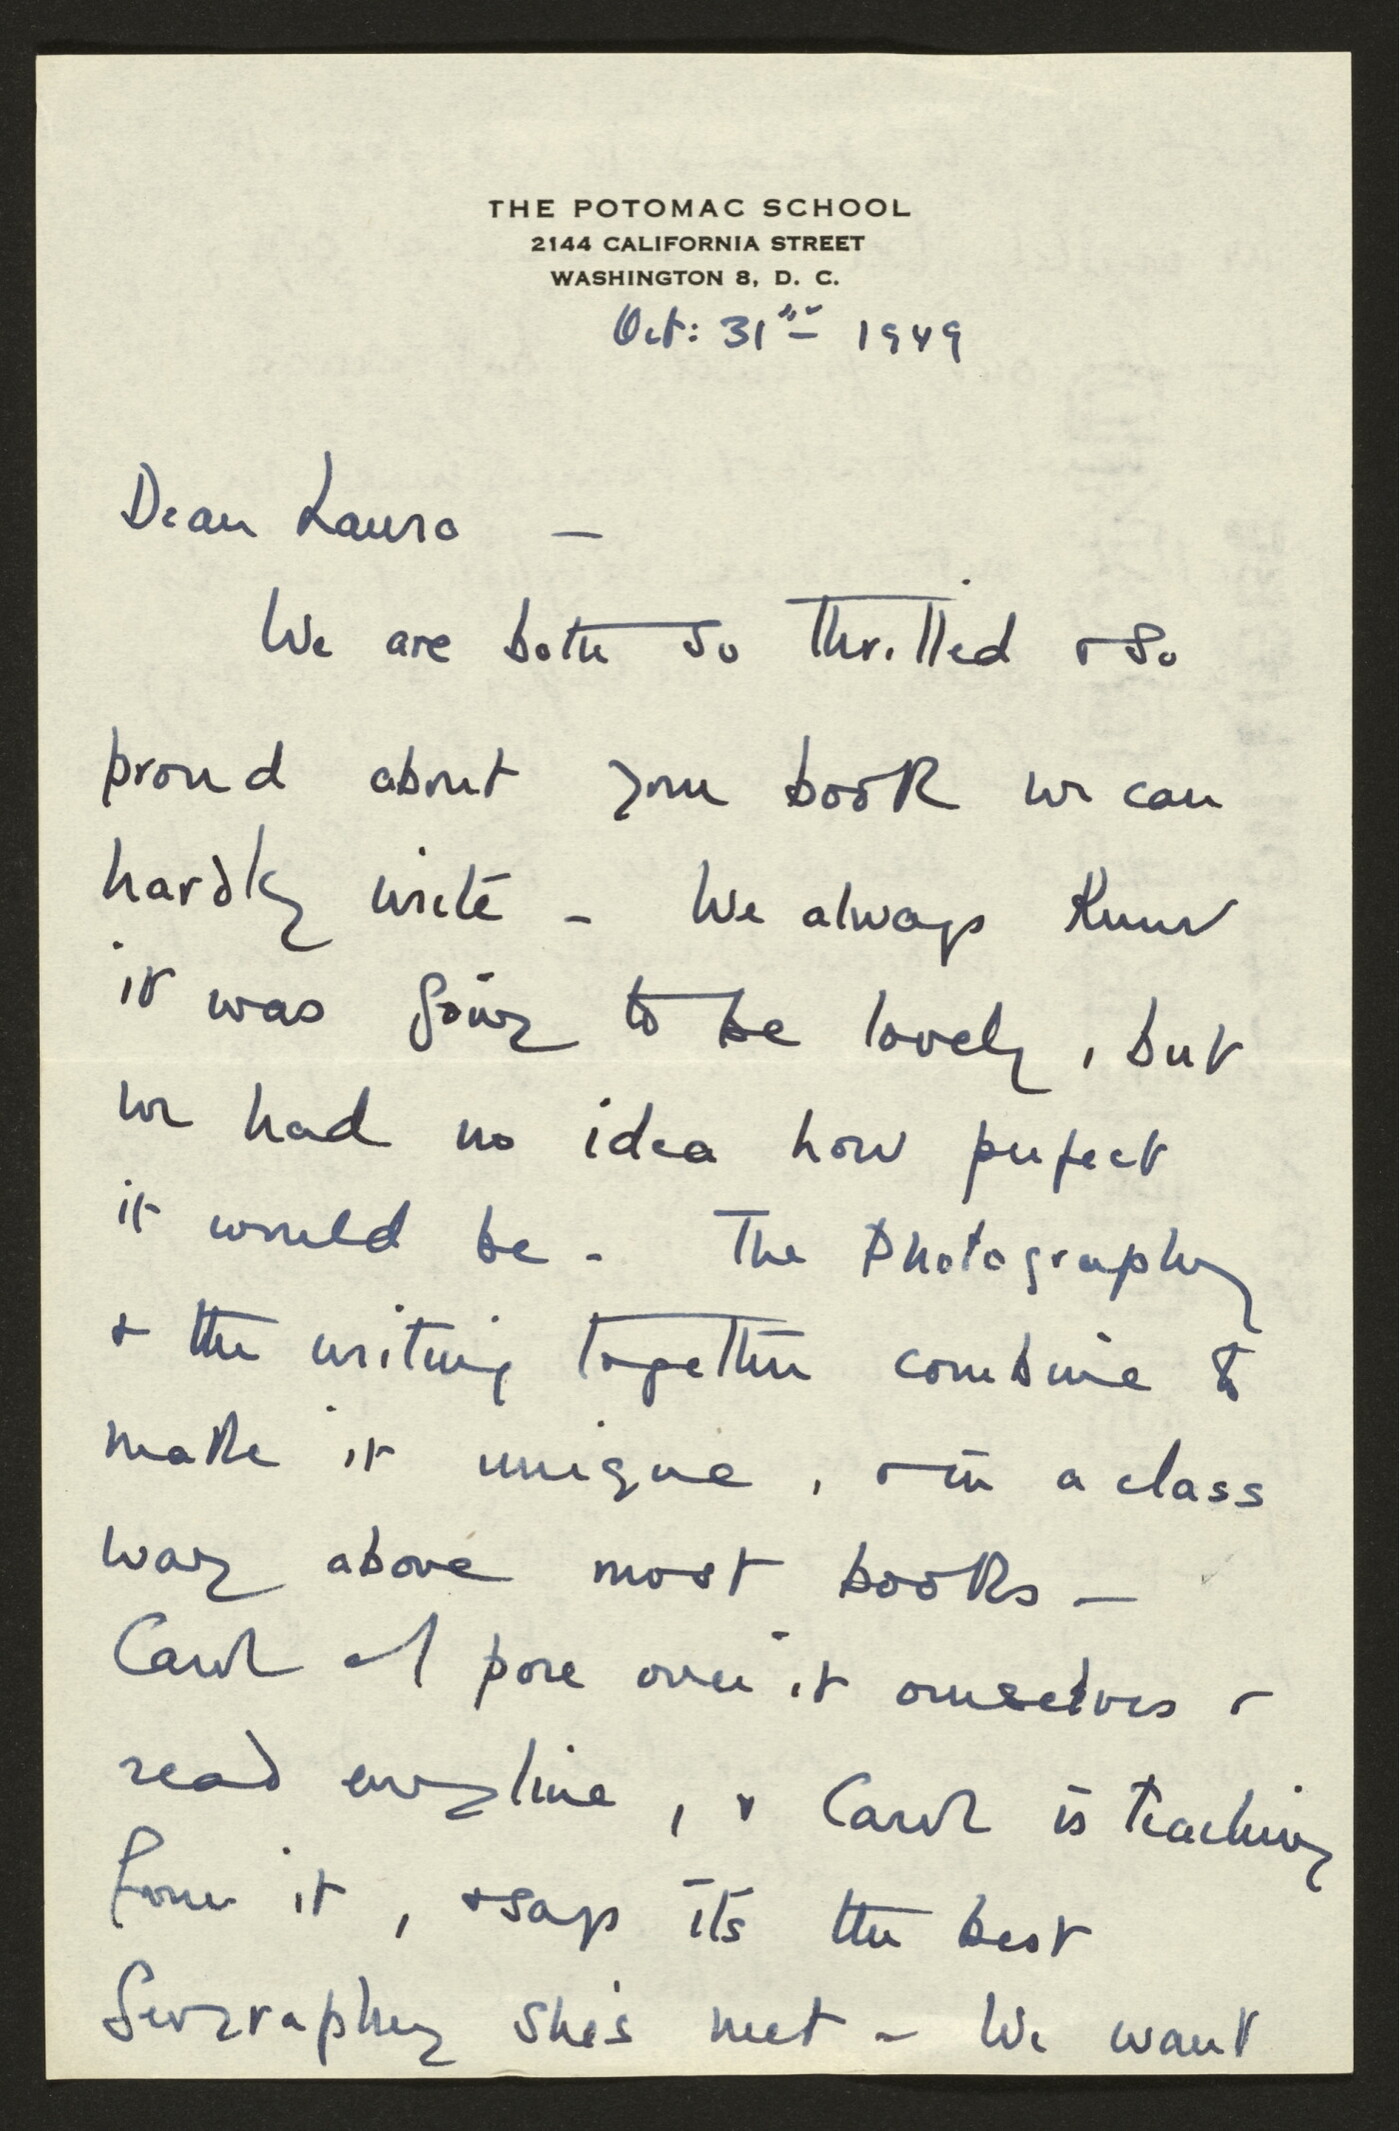 THE POTOMAC SCHOOL
2144 CALIFORNIA STREET
WASHINGTON 8, D. C.
Oct: 31st 1949
Dear Laura —
We are both so thrilled & so
proud about your book we can
hardly write - We always knew
it was going to be lovely, but
we had no idea how perfect
it would be - The Photography
& the writing together combine to
make it unique, & in a class
way above most books —
Carol & I pore over it ourselves &
read every line, & Carol is teaching
from it, & says its the best
Geography she's met - We want